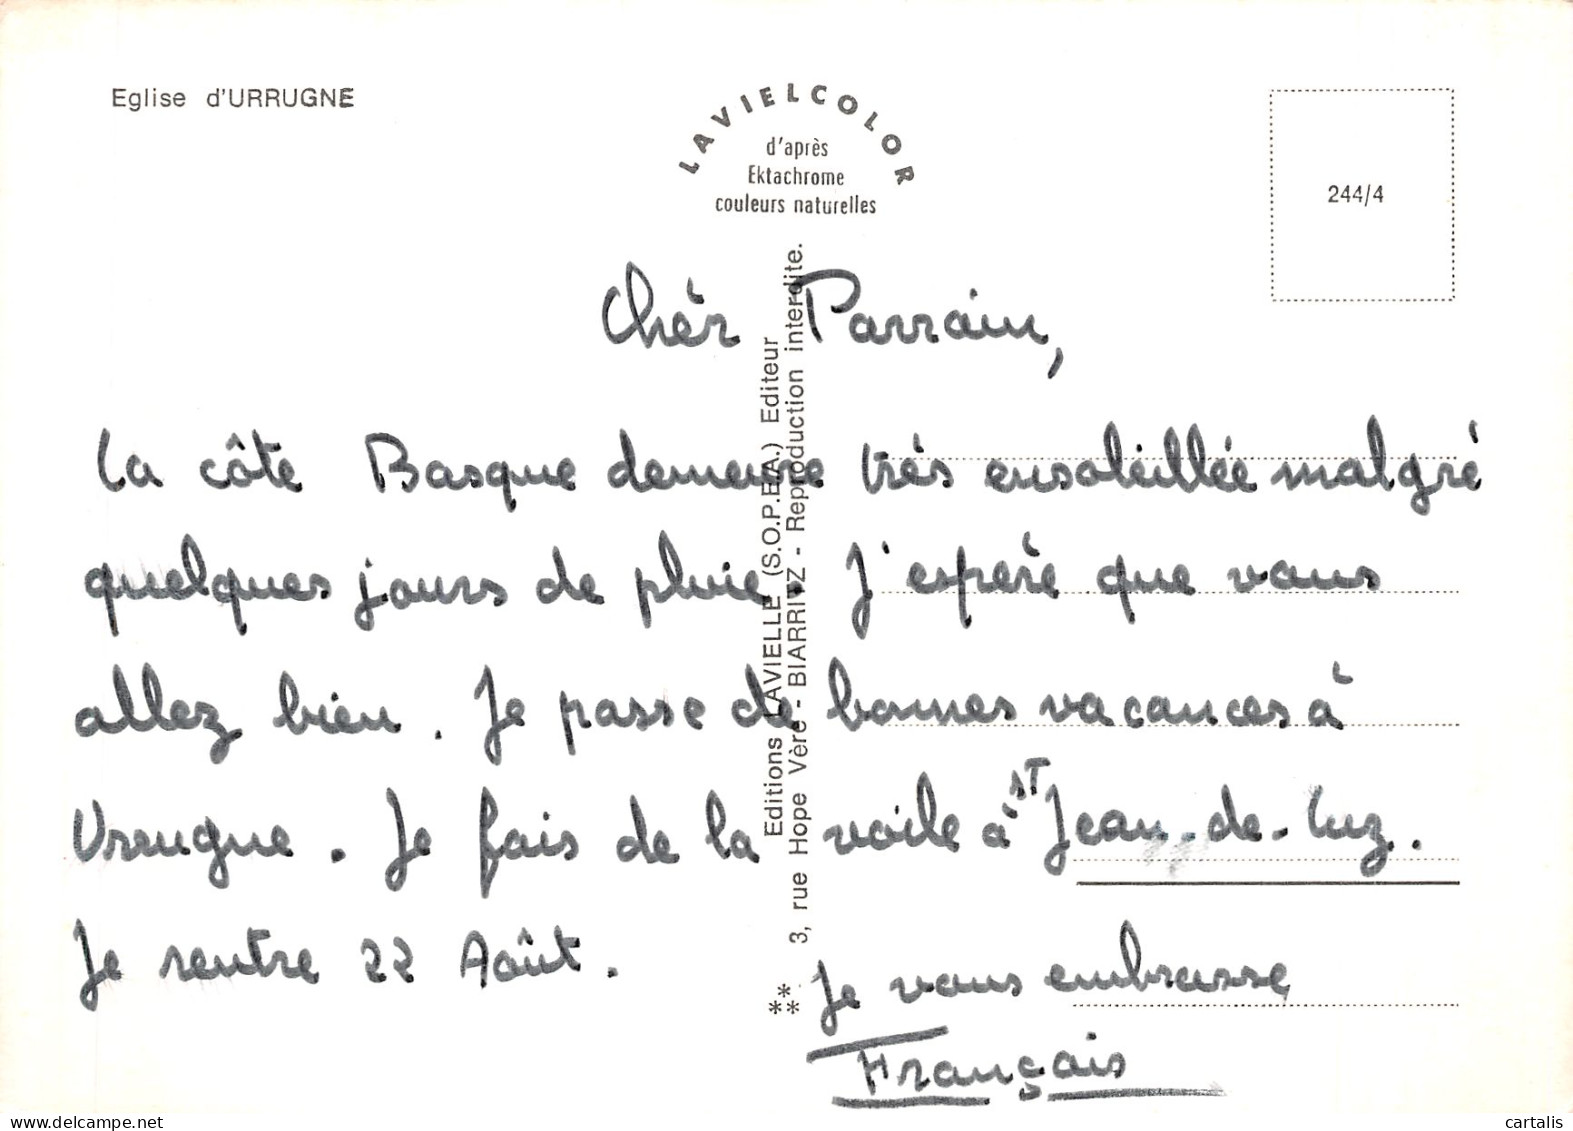 Eglise d'URRUGNE
LAVIELCOLOR
d'après
Ektachrome
couleurs naturelles
244/4
Chèr Parrain,
La côte Basque demeure très ensoleillée malgré
quelques jours de pluie. J'espère que vous
allez bien. Je passe de bonnes vacances à
Urrugne. Je fais de la voile à ST Jean-de-Luz.
Je rentre 22 Août.
Je vous embrasse,
Français
Editions LAVIELLE (S.O.P.E.A.) Editeur
** 3, rue Hope Vère - BIARRITZ - Reproduction interdite.
cartalis